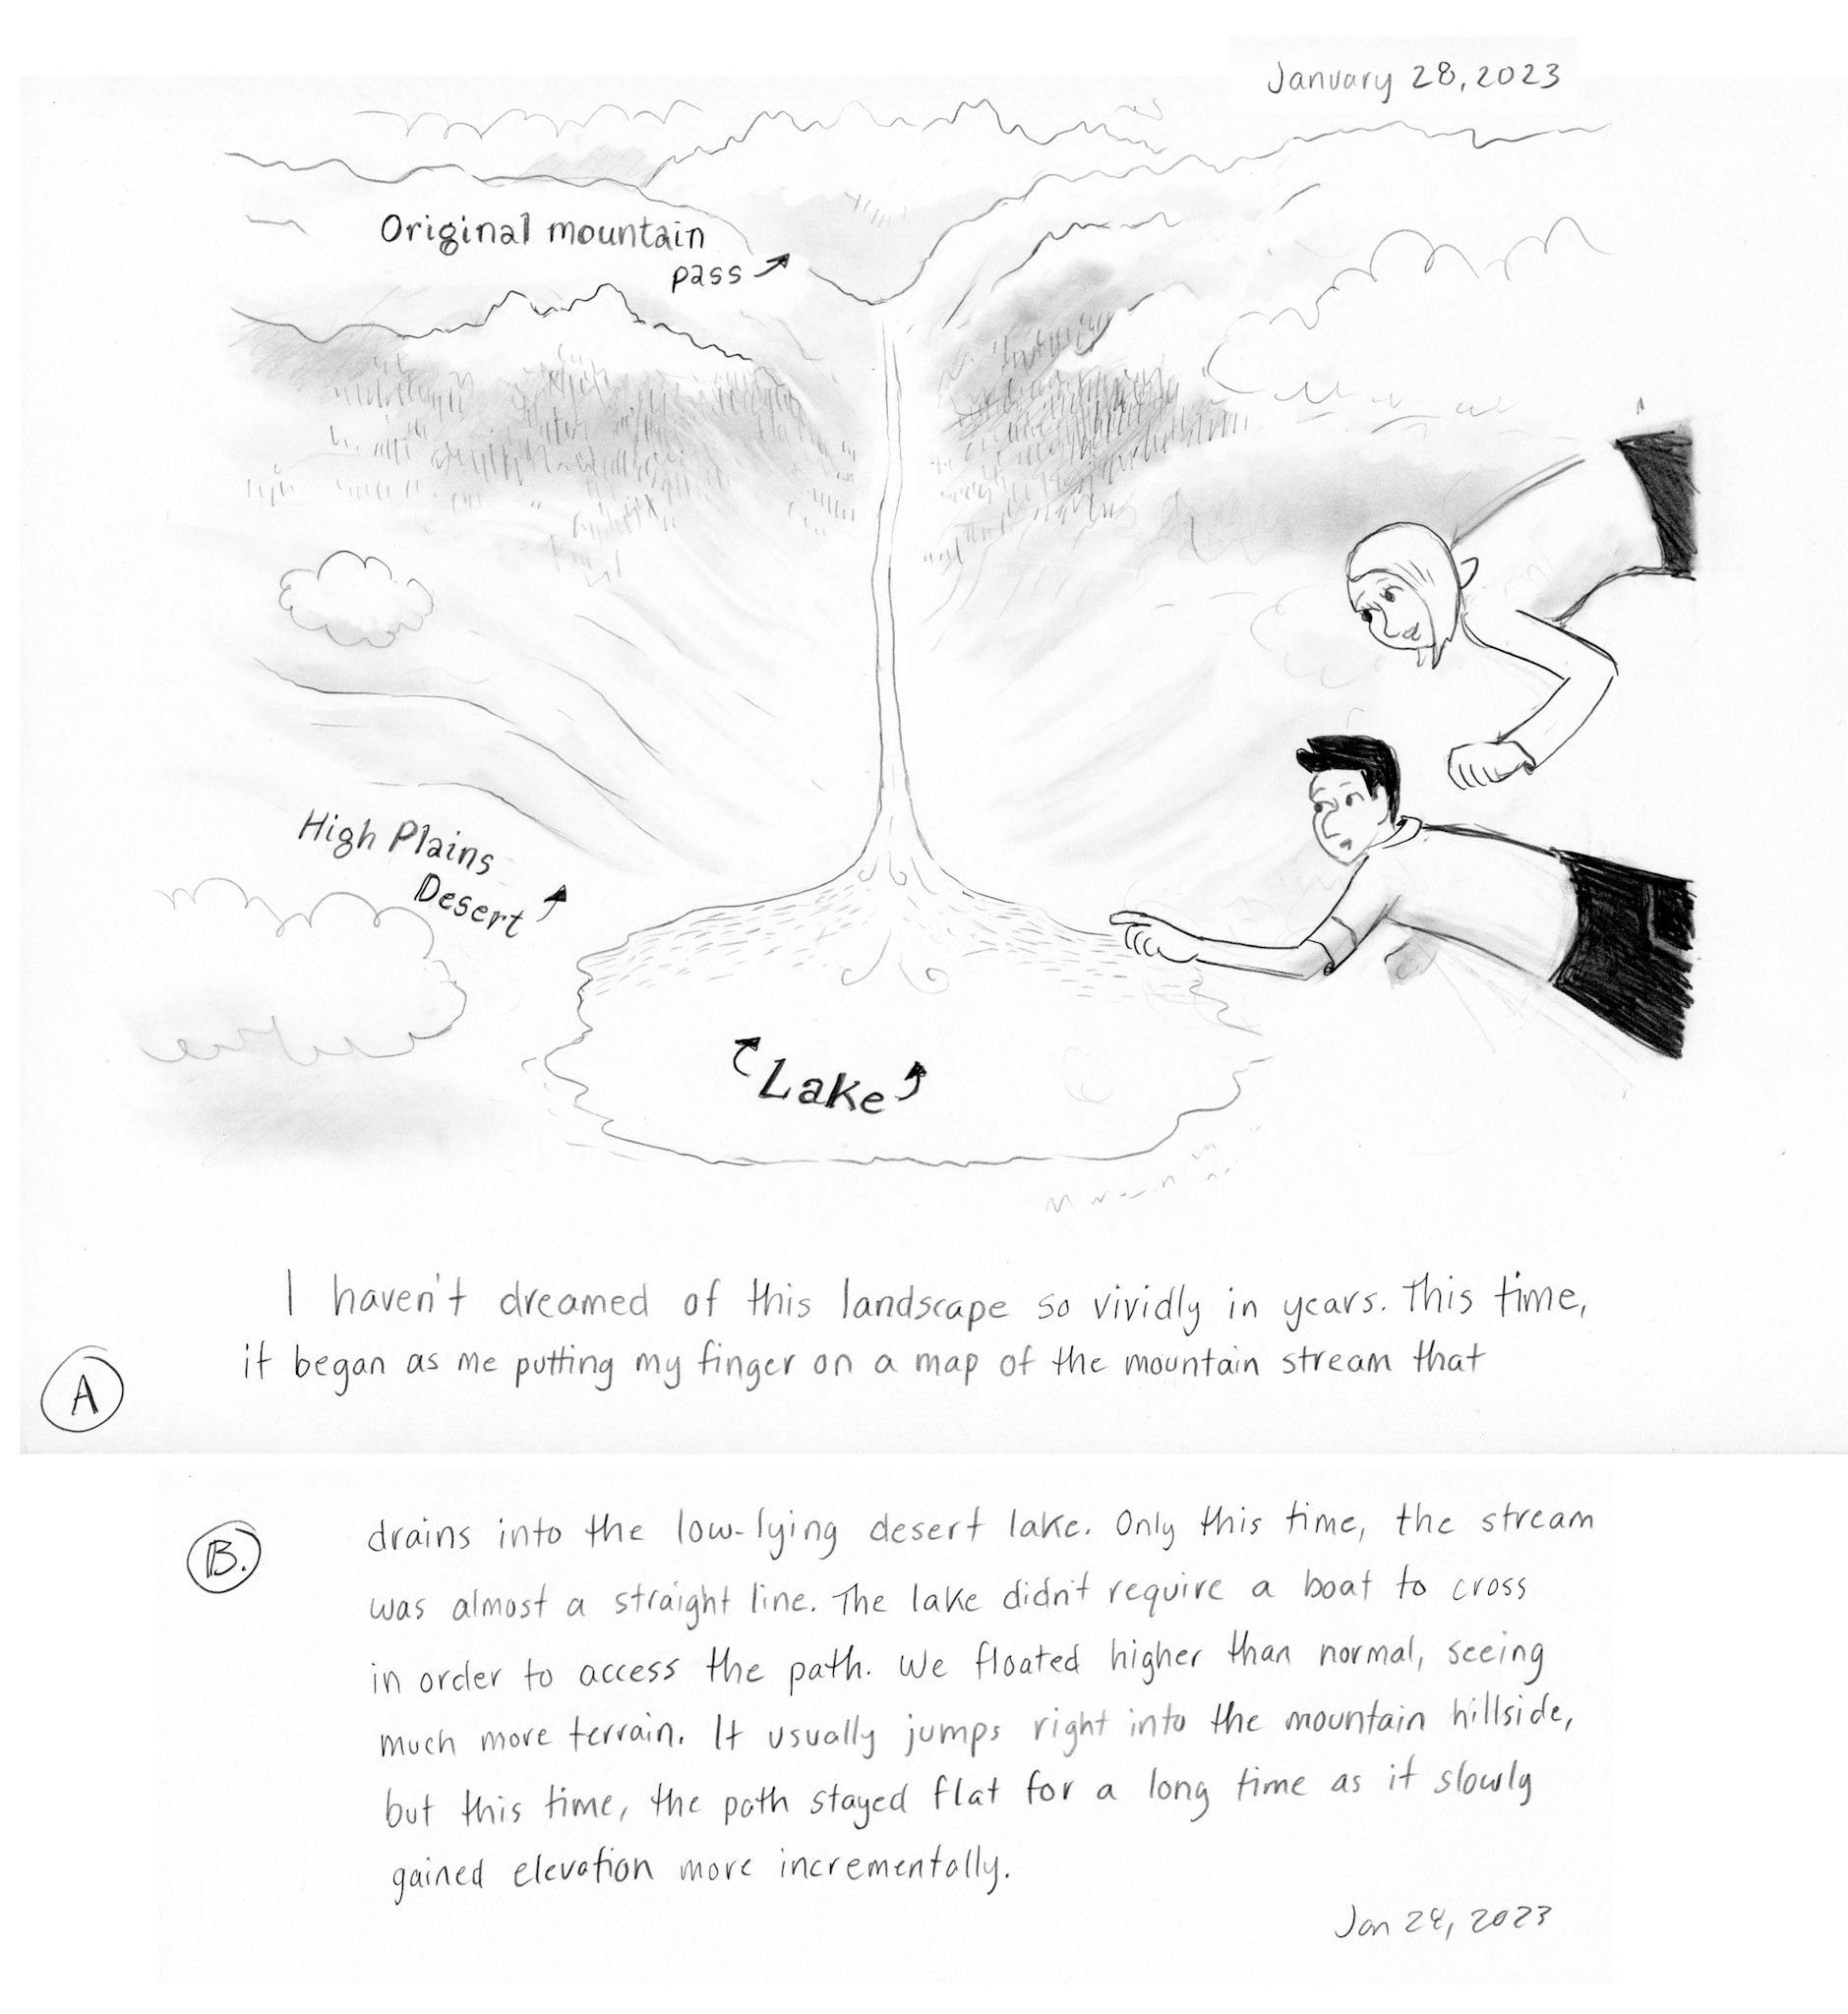 January 28, 2023
Original mountain
pass
High Plains
Desert
Lake
I haven't dreamed of this landscape so vividly in years. This time,
it began as me putting my finger on a map of the mountain stream that
A
B.
drains into the low-lying desert lake. Only this time, the stream
was almost a straight line. The lake didn't require a boat to cross
in order to access the path. We floated higher than normal, seeing
much more terrain. It usually jumps right into the mountain hillside,
but this time, the path stayed flat for a long time as it slowly
gained elevation more incrementally.
Jan 28, 2023